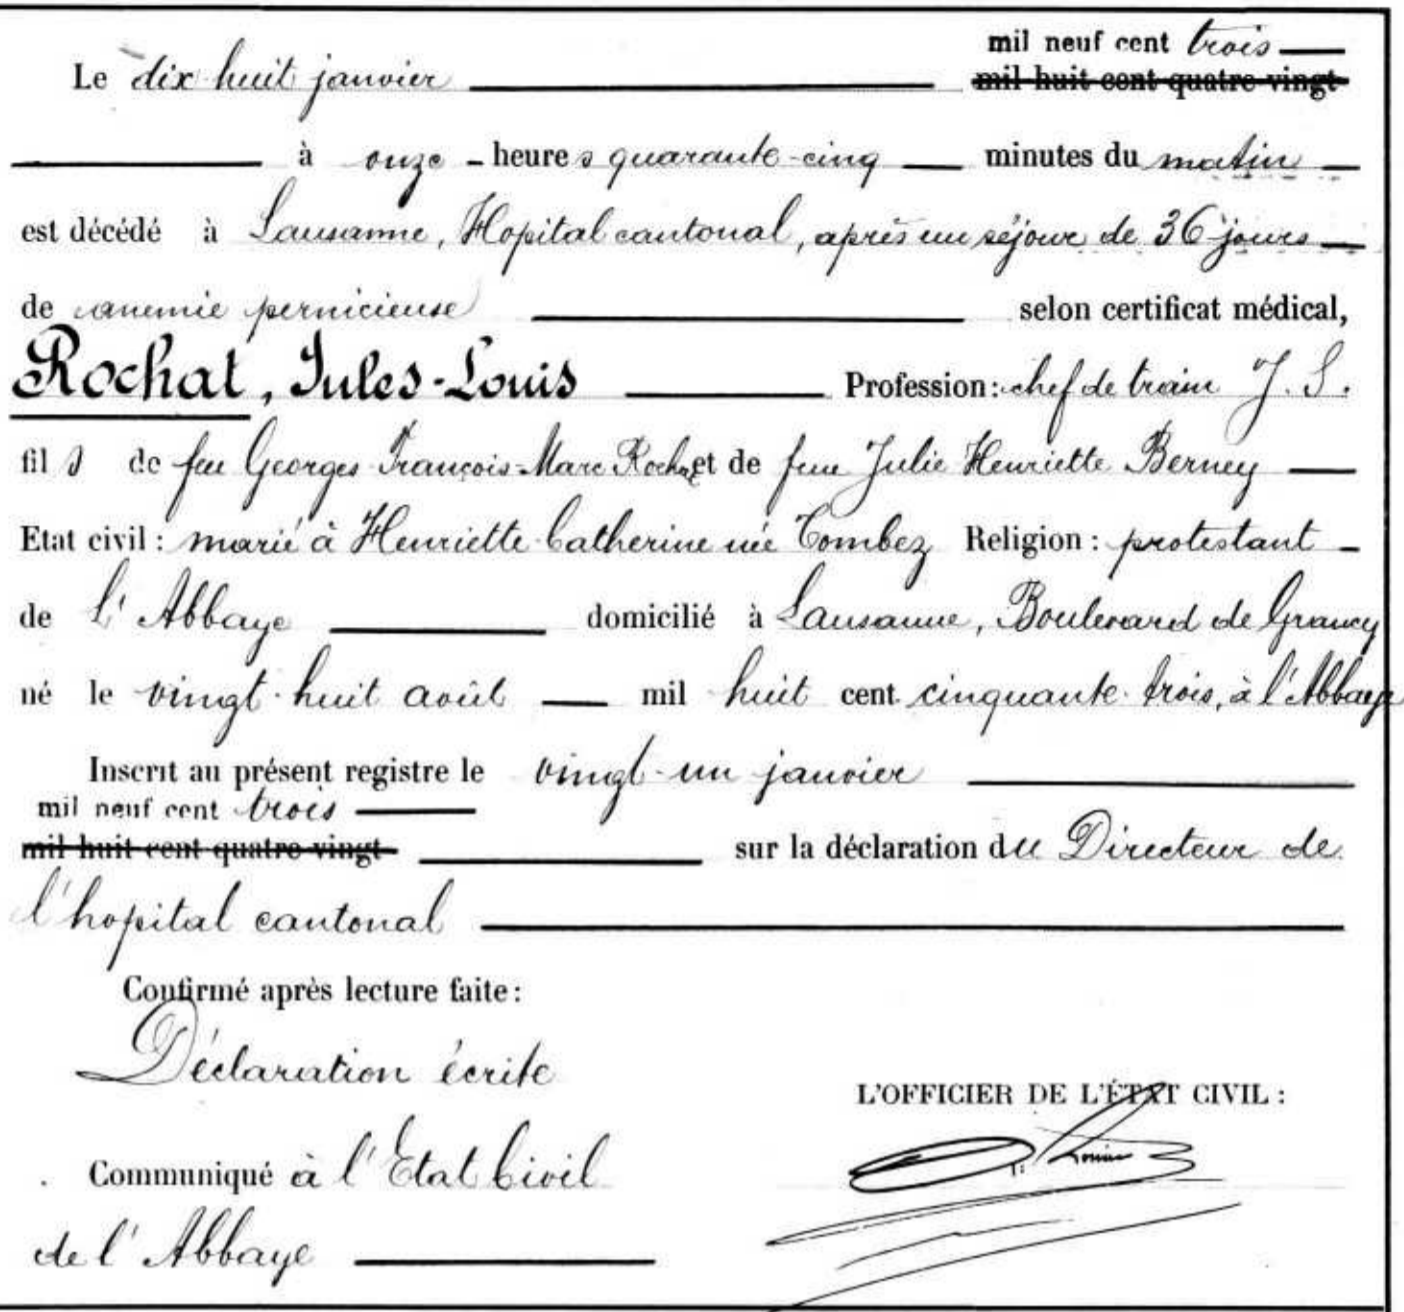 mil neuf cent trois
Le dix huit janvier mil huit cent quatre-vingt
à onze heures quarante-cinq minutes du matin
est décédé à Lausanne, Hopital cantonal, après un séjour de 36 jours
de anemie pernicieuse selon certificat médical,
Rochat, Jules-Louis Profession: chef de train J. S.
fils de feu Georges François-Marc Rochat et de feue Julie Henriette Berney
Etat civil: marié à Henriette Catherine née Tombez Religion: protestant
de L'Abbaye domicilié à Lausanne, Boulevard de Grancy
né le vingt-huit août mil huit cent cinquante-trois, à l'Abbaye
Inscrit au présent registre le vingt-un janvier
mil neuf cent trois
mil huit cent quatre-vingt sur la déclaration du Directeur de
l'hopital cantonal
Confirmé après lecture faite:
Déclaration écrite
L'OFFICIER DE L'ÉTAT CIVIL:
Communiqué à l'Etat Civil
de l'Abbaye